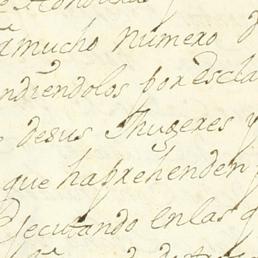 de Honduras
mucho numero d
ndiendolos por escla
desus Mugeres y
que haprehenden
Executando enlas q